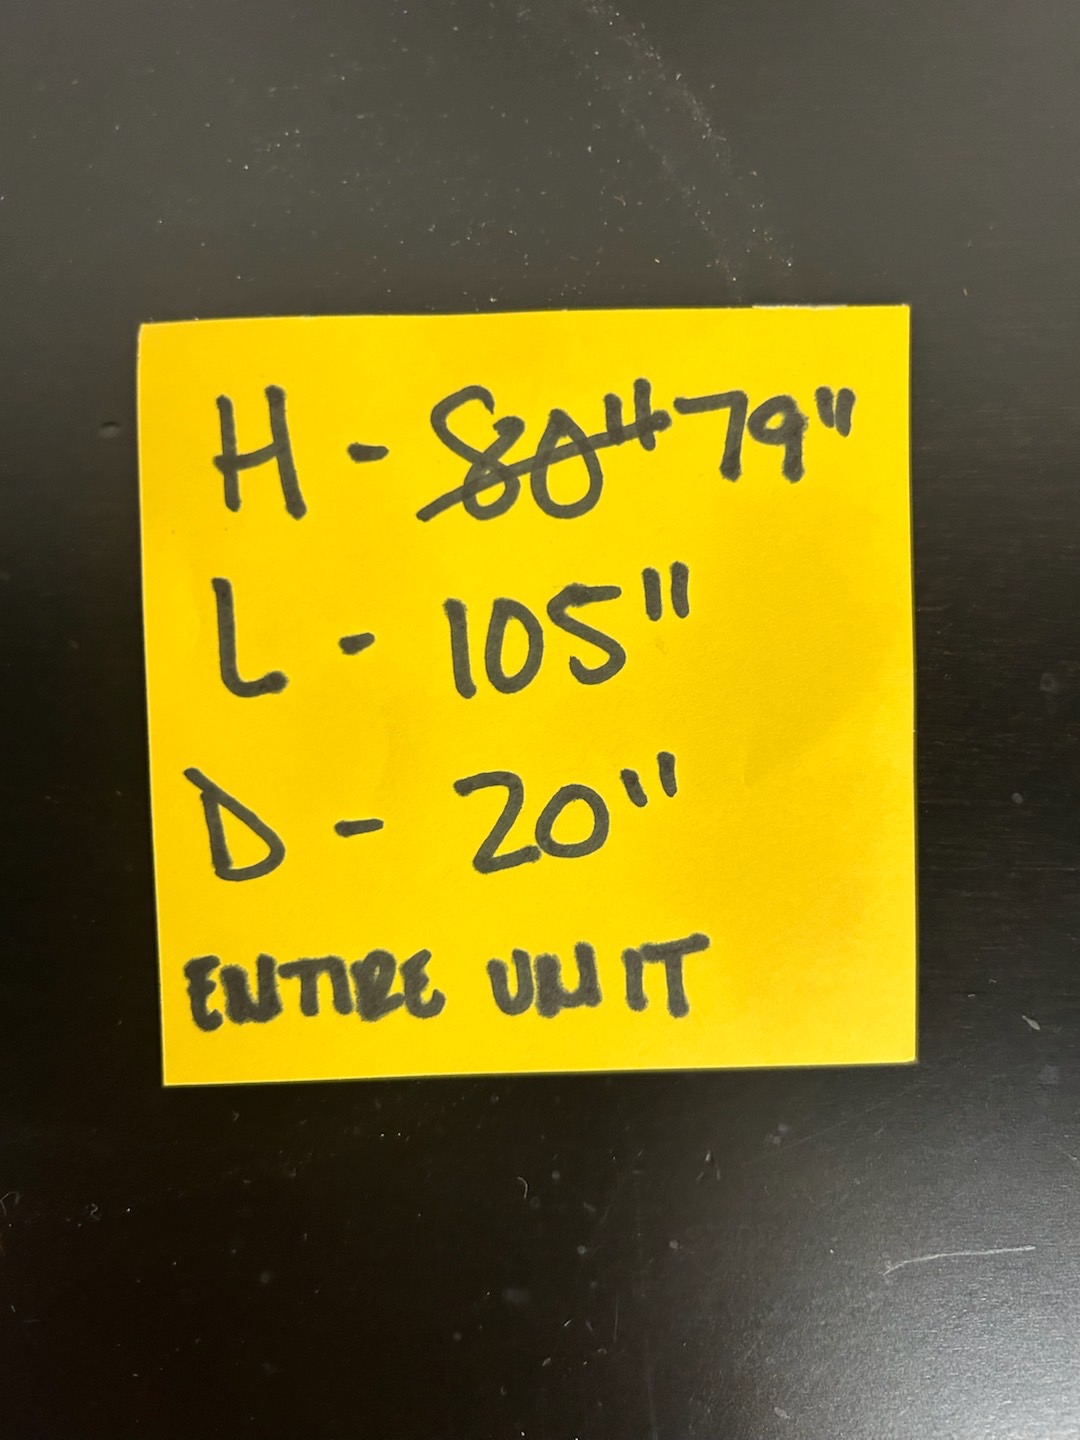 H - 80" 79"
L - 105"
D - 20"
ENTIRE UNIT